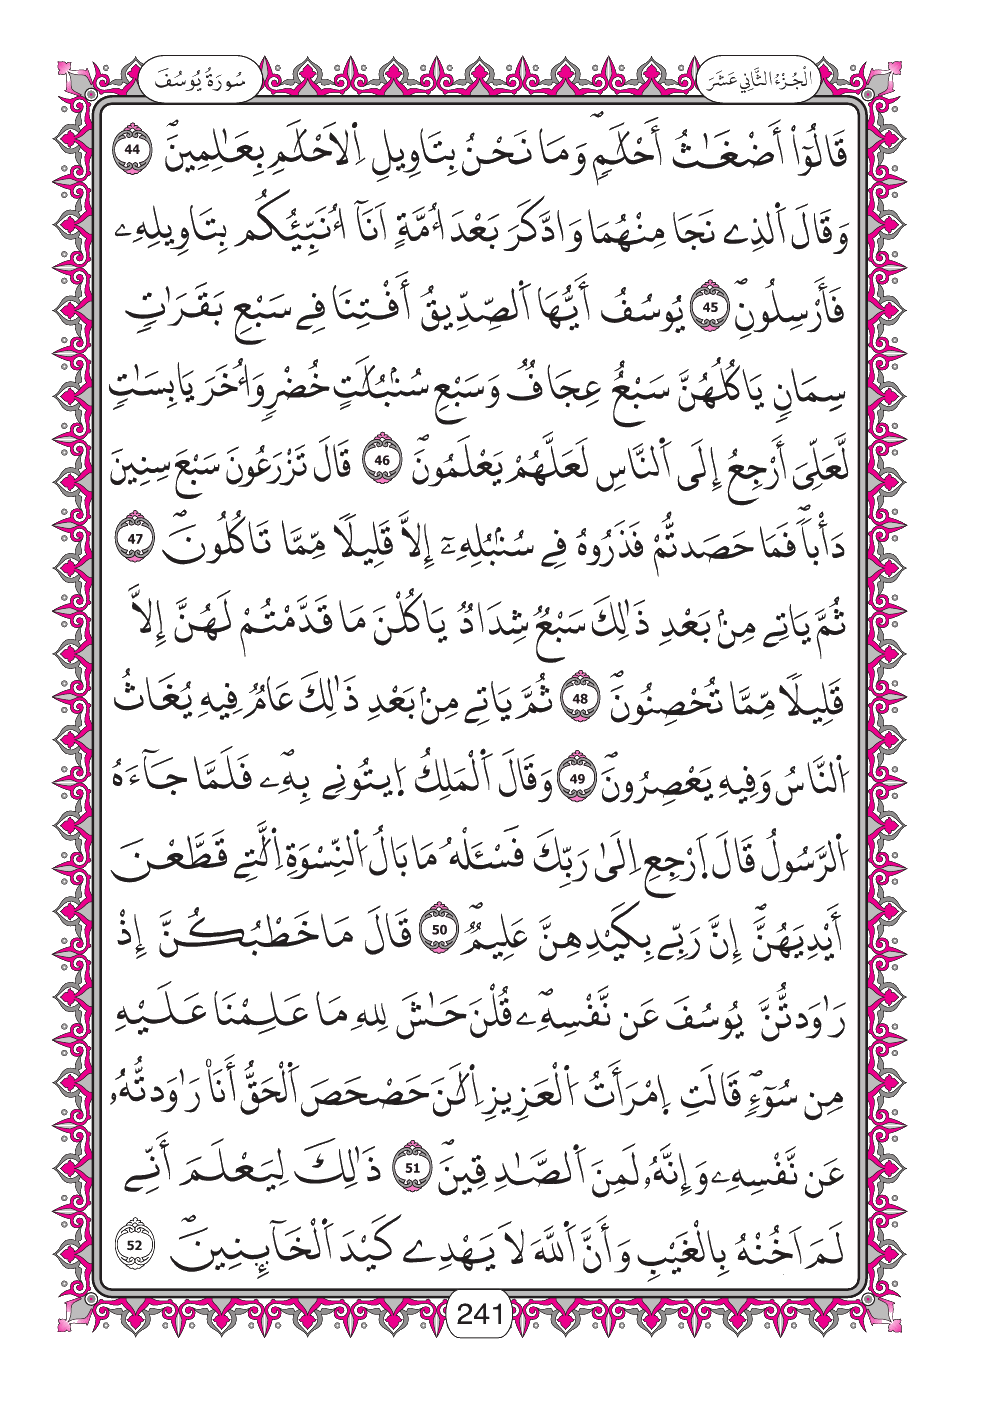 الْجُزْءُ الثَّانِي عَشَرَ
سُورَةُ يُوسُفَ
قَالُوٓاْ أَضْغَٰثُ أَحْلَٰمٖۖ وَمَا نَحْنُ بِتَاوِيلِ اِ۬لَاحْلَٰمِ بِعَٰلِمِينَۖ 44
وَقَالَ اَ۬لذِے نَجَا مِنْهُمَا وَادَّكَرَ بَعْدَ أُمَّةٍ اَنَآ أُنَبِّئُكُم بِتَاوِيلِهِۦ
فَأَرْسِلُونِۖ 45 يُوسُفُ أَيُّهَا اَ۬لصِّدِّيقُ أَفْتِنَا فِے سَبْعِ بَقَرَٰتٖ
سِمَانٖ يَاكُلُهُنَّ سَبْعٌ عِجَافٞ وَسَبْعِ سُنۢبُلَٰتٍ خُضْرٖ وَأُخَرَ يَابِسَٰتٖ
لَّعَلِّيَ أَرْجِعُ إِلَي اَ۬لنَّاسِ لَعَلَّهُمْ يَعْلَمُونَۖ 46 قَالَ تَزْرَعُونَ سَبْعَ سِنِينَ
دَأْباٗۖ فَمَا حَصَدتُّمْ فَذَرُوهُ فِے سُنۢبُلِهِۦٓ إِلَّا قَلِيلًا مِّمَّا تَاكُلُونَۖ 47
ثُمَّ يَاتِے مِنۢ بَعْدِ ذَٰلِكَ سَبْعٞ شِدَادٞ يَاكُلْنَ مَا قَدَّمْتُمْ لَهُنَّ إِلَّا
قَلِيلًا مِّمَّا تُحْصِنُونَۖ 48 ثُمَّ يَاتِے مِنۢ بَعْدِ ذَٰلِكَ عَامٞ فِيهِ يُغَاثُ
اُ۬لنَّاسُ وَفِيهِ يَعْصِرُونَۖ 49 وَقَالَ اَ۬لْمَلِكُ اُ۪يتُونِے بِهِۦۖ فَلَمَّا جَآءَهُ
اُ۬لرَّسُولُ قَالَ اَ۪رْجِعِ اِلَىٰ رَبِّكَ فَسْـَٔلْهُ مَا بَالُ اُ۬لنِّسْوَةِ اِ۬لَّٰتِے قَطَّعْنَ
أَيْدِيَهُنَّۖ إِنَّ رَبِّے بِكَيْدِهِنَّ عَلِيمٞۖ 50 قَالَ مَا خَطْبُكُنَّ إِذْ
رَٰوَدتُّنَّ يُوسُفَ عَن نَّفْسِهِۦۖ قُلْنَ حَٰشَ لِلهِ مَا عَلِمْنَا عَلَيْهِ
مِن سُوٓءٖۖ قَالَتِ اِ۪مْرَأَتُ اُ۬لْعَزِيزِ اِ۬لَٰنَ حَصْحَصَ اَ۬لْحَقُّ أَنَا۠ رَٰوَدتُّهُۥ
عَن نَّفْسِهِۦ وَإِنَّهُۥ لَمِنَ اَ۬لصَّٰدِقِينَۖ 51 ذَٰلِكَ لِيَعْلَمَ أَنِّے
لَمَ اَخُنْهُ بِالْغَيْبِ وَأَنَّ اَ۬للَّهَ لَا يَهْدِے كَيْدَ اَ۬لْخَآئِنِينَۖ 52
241